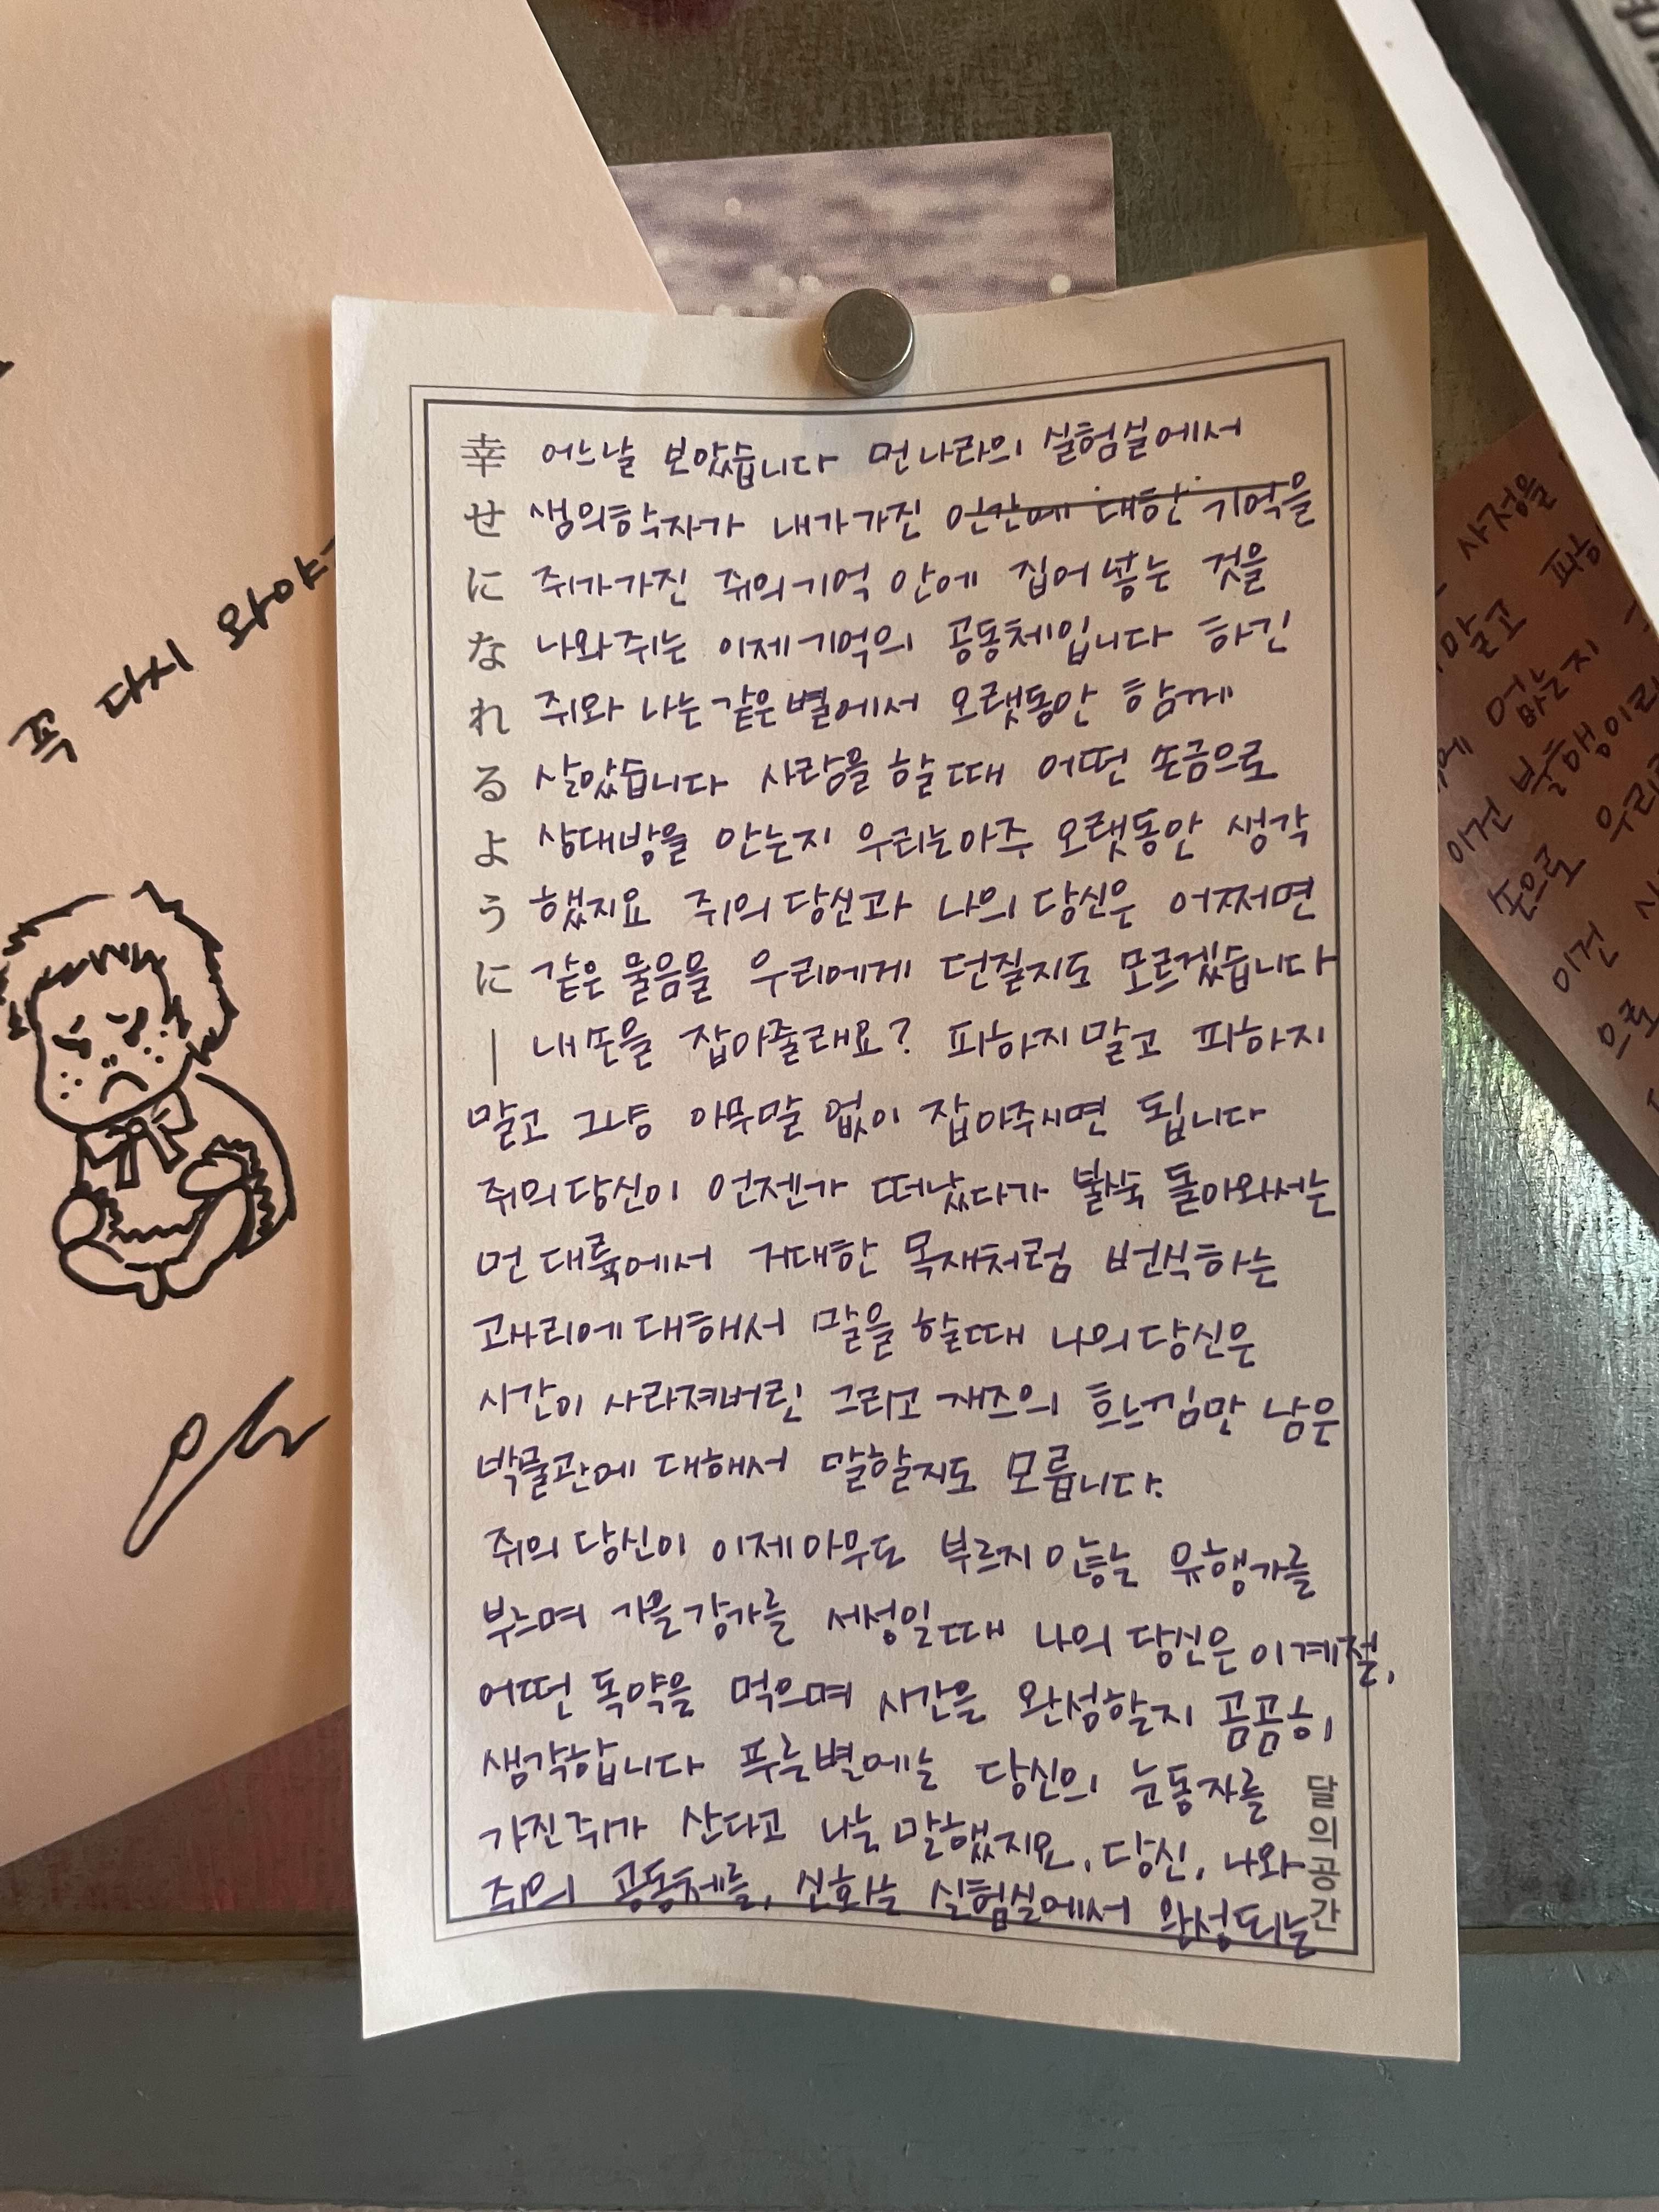 꼭 다시 와야
幸せになれるように
어느날 보았습니다 먼나라의 실험실에서
생의학자가 내가가진 인간에 대한 기억을
쥐가가진 쥐의기억 안에 집어넣는 것을
나와쥐는 이제기억의 공동체입니다 하긴
쥐와 나는같은별에서 오랫동안 함께
살았습니다 사람을 할때 어떤 손금으로
상대방을 안는지 우리는아주 오랫동안 생각
했지요 쥐의당신과 나의당신은 어쩌면
같은 물음을 우리에게 던질지도 모르겠습니다
내 손을 잡아줄래요? 피하지말고 피하지
말고 그냥 아무말 없이 잡아주시면 됩니다
쥐의당신이 언젠가 떠났다가 불쑥 돌아와서는
먼 대륙에서 거대한 목재처럼 번식하는
고사리에대해서 말을 할때 나의당신은
시간이 사라져버린 그리고 재즈의 흐느낌만 남은
박물관에 대해서 말할지도 모릅니다.
쥐의 당신이 이제아무도 부르지 않는 유행가를
부르며 가을강가를 서성일때 나의 당신은이계절,
어떤 독약을 먹으며 시간을 완성할지 곰곰히
생각합니다 푸른별에는 당신의 눈동자를
가진쥐가 산다고 나는 말했지요, 당신, 나와
쥐의 공동체를, 신화는 실험실에서 완성되는
달의공간
사정을
말고 피하
없는지
이건 불행이라
손으로 우리
이건
으로